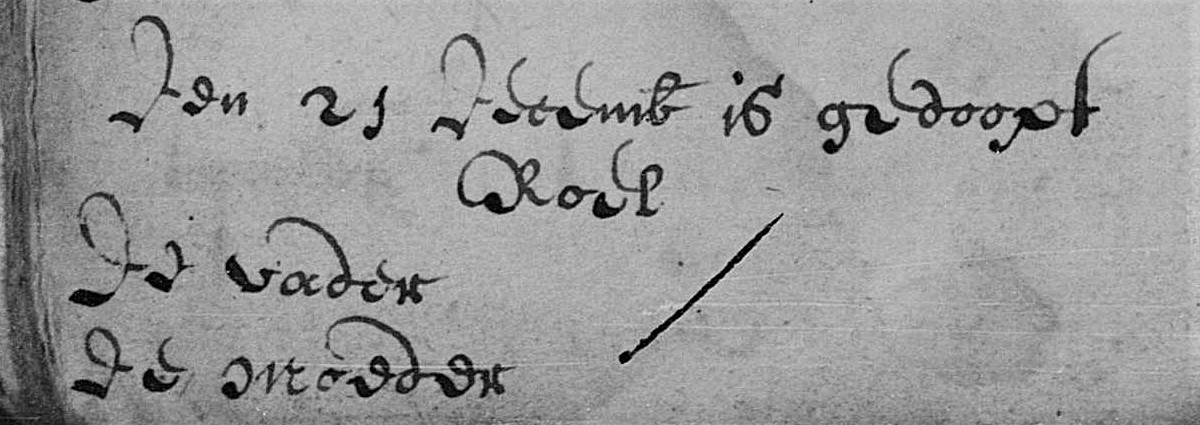 Den 21 Decemb is gedoopt
Roel
De vader
De Moeder